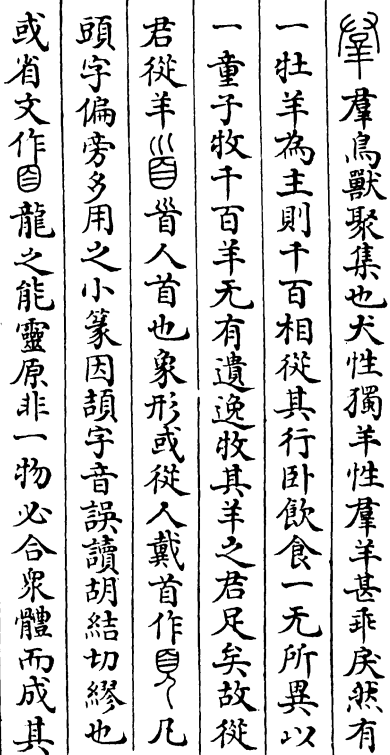 羣鳥獸聚集也犬性獨羊性羣羊甚乖戾然有
一牡羊為主則千百相從其行卧飲食一无所異以
一童子牧千百羊无有遺逸牧其羊之君足矣故從
君從羊𦣻人首也象形或從人戴首作凡
頭字偏旁多用之小篆因頡字音誤讀胡結切繆也
或省文作龍之能靈原非一物必合衆體而成其